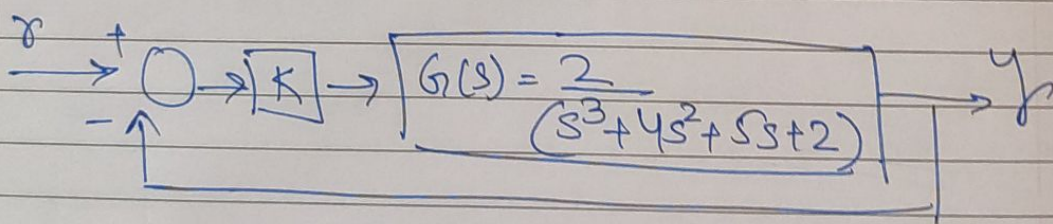 r + K G(s) = 2 y
(s³+4s²+5s+2)
-